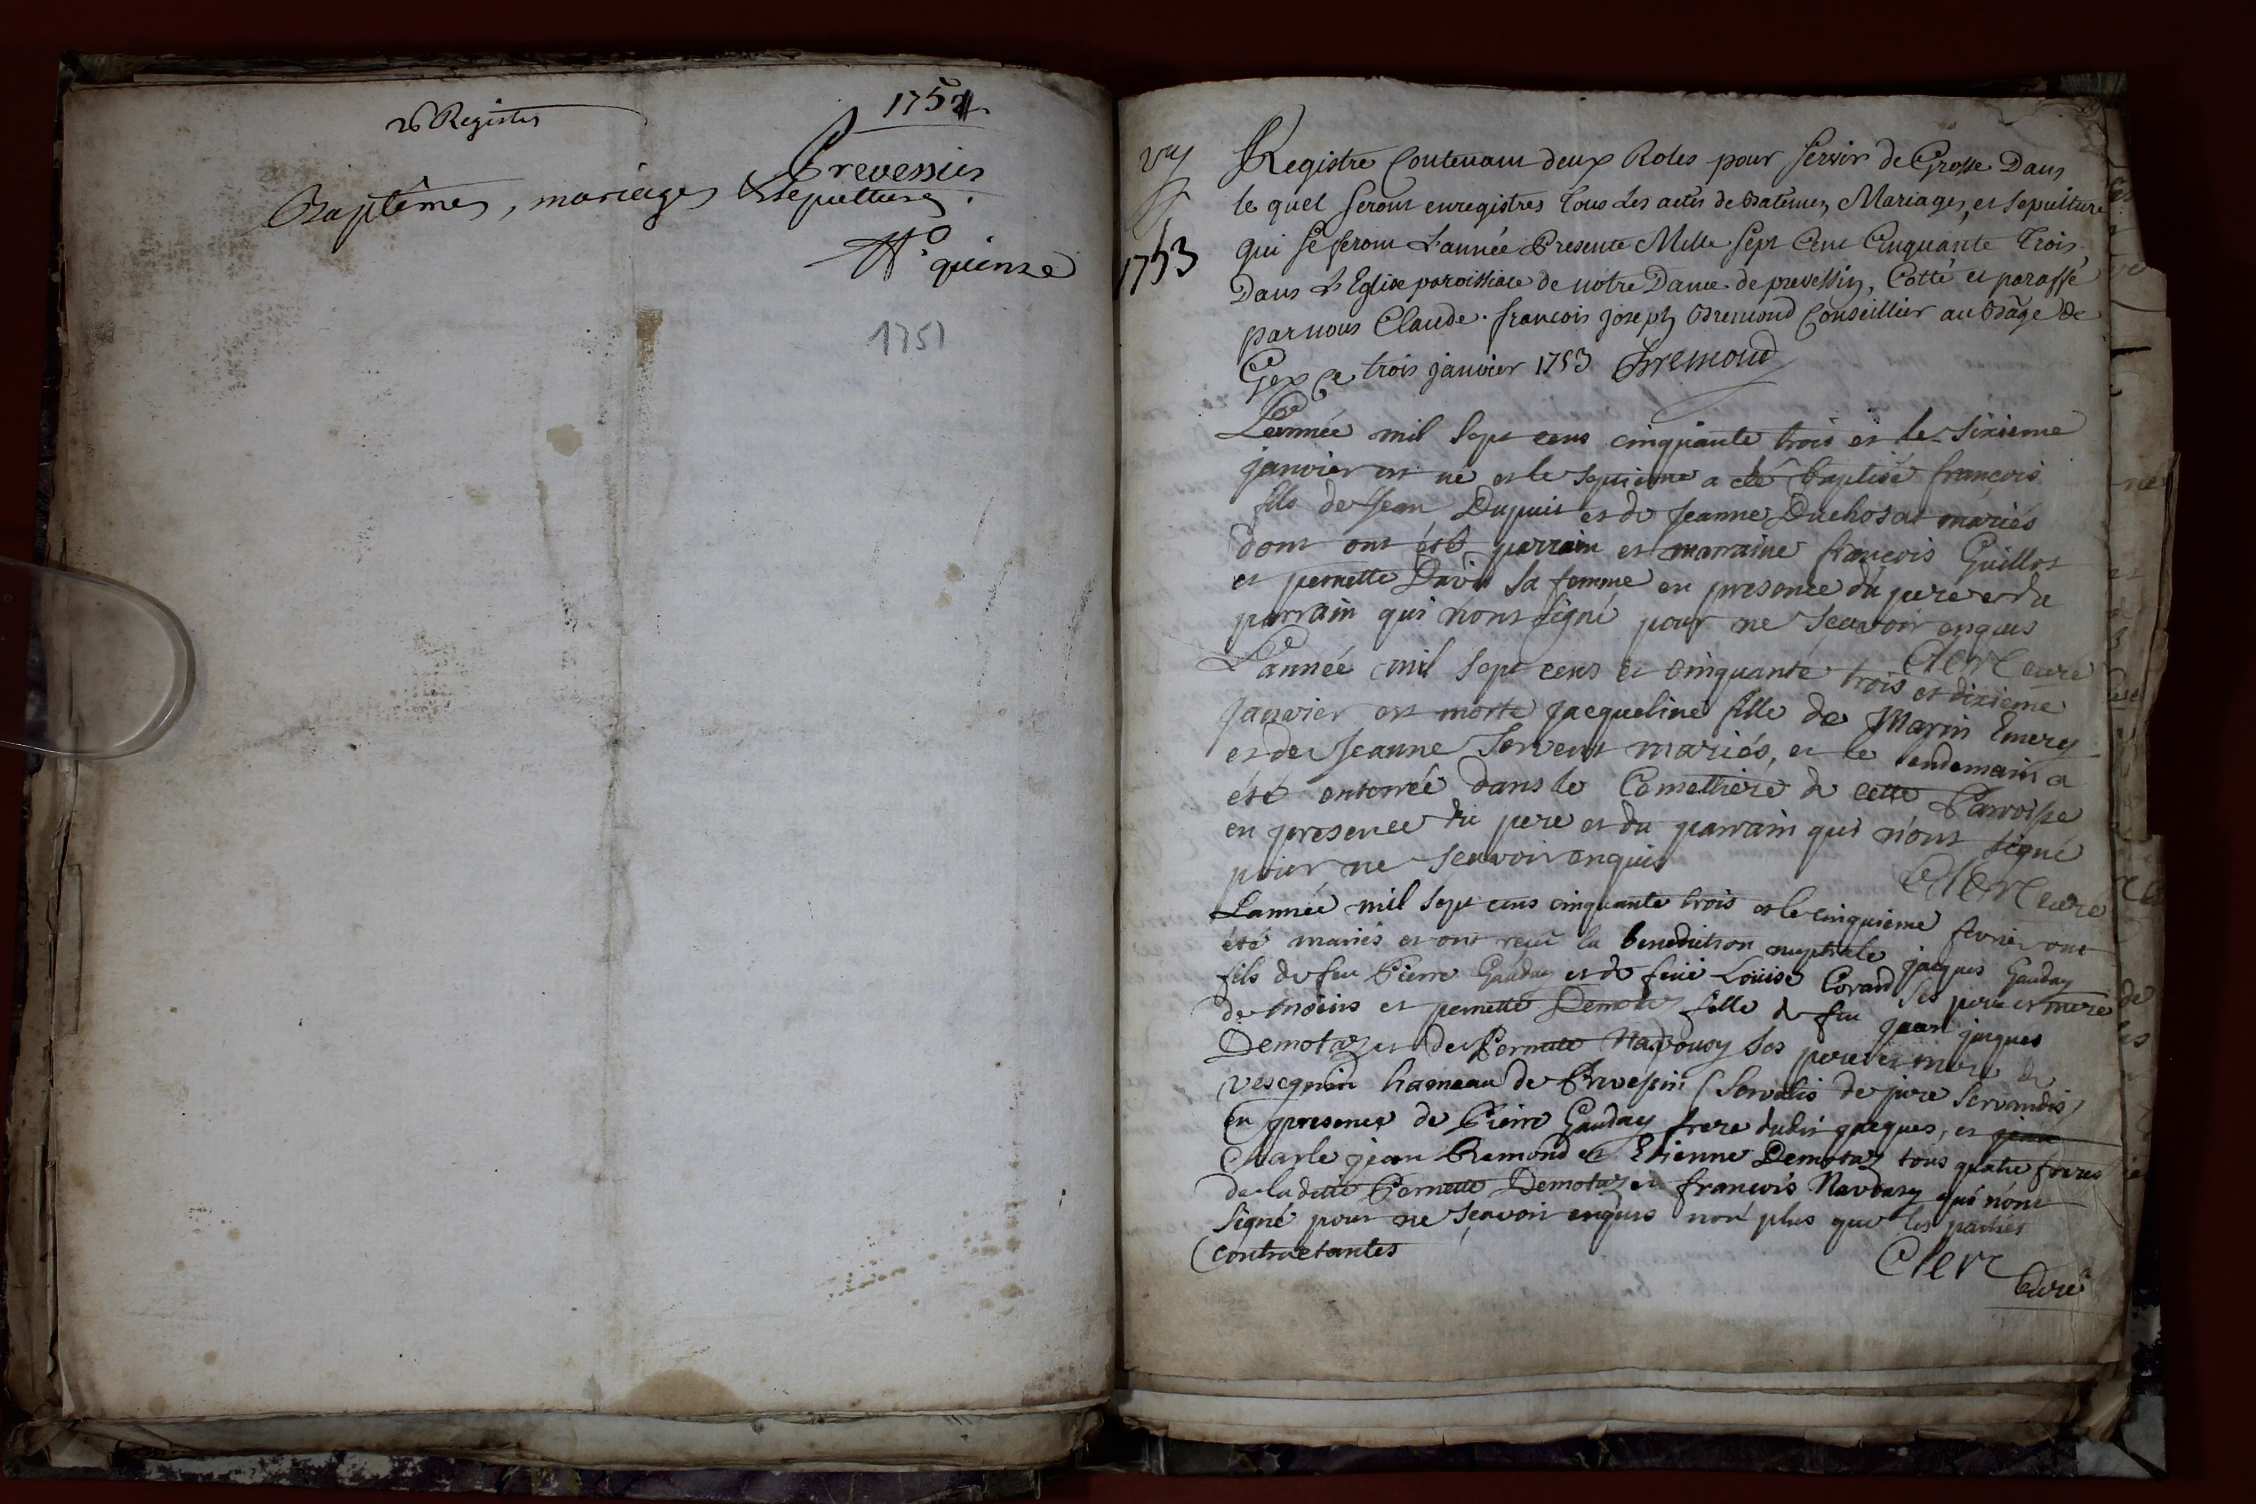 26 Registre
1752
Prevessin
Baptêmes, mariages & sepultures.
N.º quinze
1751
1753
Registre Contenant deux Roles pour servir de Grosse Dans
le quel seront enregistres Tous Les actes de Batemes, Mariages, et sepulture
qui se feront L'année Presente Mille Sept Cent Cinquante Trois
Dans L'Eglise paroissiale de nôtre Dame de prevessin, Cotté et paraffé
par nous Claude françois joseph Bremond Conseillier au Bâge de
Gex Ce trois janvier 1753 Bremond
L'année mil sept cens cinquante trois et le sixieme
janvier est né et le septieme a été baptisé francois
fils de Jean Dupuit et de Jeanne Duchosat mariés
dont ont été parrain et marraine francois Guillot
et pernette David sa femme en presence du pere et du
parrain qui n'ont signé pour ne sçavoir enquis
Clerc curé
L'année mil sept cens et cinquante trois et dixieme
janvier est morte jacqueline fille de Marin Emery
et de Jeanne Servent mariés, et le lendemain a
été enterrée dans le Cemettiere de cette Parroisse
en presence du pere et du parrain qui n'ont signé
pour ne sçavoir enquis
Clerc curé
L'année mil sept cens cinquante trois et le cinquieme fevrier ont
été mariés et ont reçu la benediction nuptiale jacques Gauday
fils de feu Pierre Gauday et de feüe Loüise Corand ses pere et mere
de moëns et pernette Demotaz fille de feu jean jacques
Demotaz et de Pernette ses pere et mere de
vesegnin hameau de Prevessin (servatis de jure servandis)
en presence de Pierre Gauday frere dudit jacques, et jean
Charle jean Bremond et Etienne Demotaz tous quatre freres
de la ditte Pernette Demotaz et francois qui n'ont
signé pour ne sçavoir enquis non plus que les parties
contractantes
Clerc
Curé